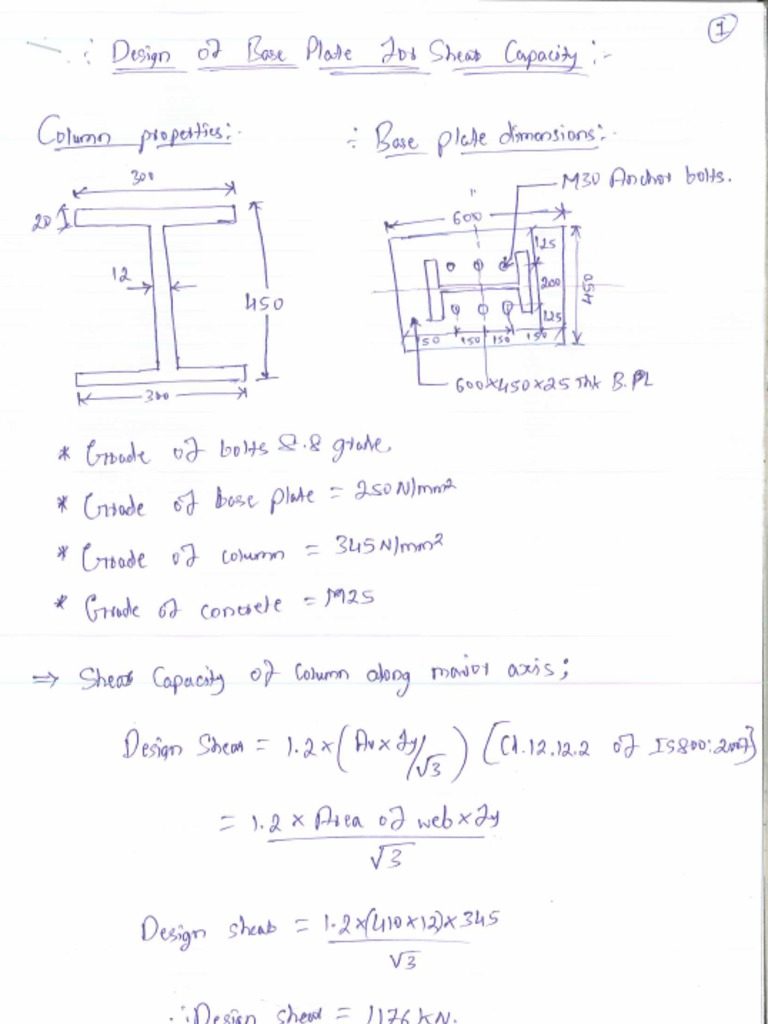 1
∴ Design of Base Plate for Shear Capacity :-
Column properties:-
÷ Base plate dimensions:-
300
20
12
450
300
M30 Anchor bolts.
600
125
200
125
450
150 150 150
600×450×25 Thk B.PL
* Grade of bolts 8.8 grade.
* Grade of base plate = 250 N/mm²
* Grade of column = 345 N/mm²
* Grade of concrete = M25
⇒ Shear Capacity of Column along major axis;
Design Shear = 1.2×(Av×fy/√3) [Cl.12.12.2 of IS800:2007]
= 1.2 × Area of web×fy
√3
Design shear = 1.2×(410×12)×345
√3
∴ Design shear = 1176 KN.